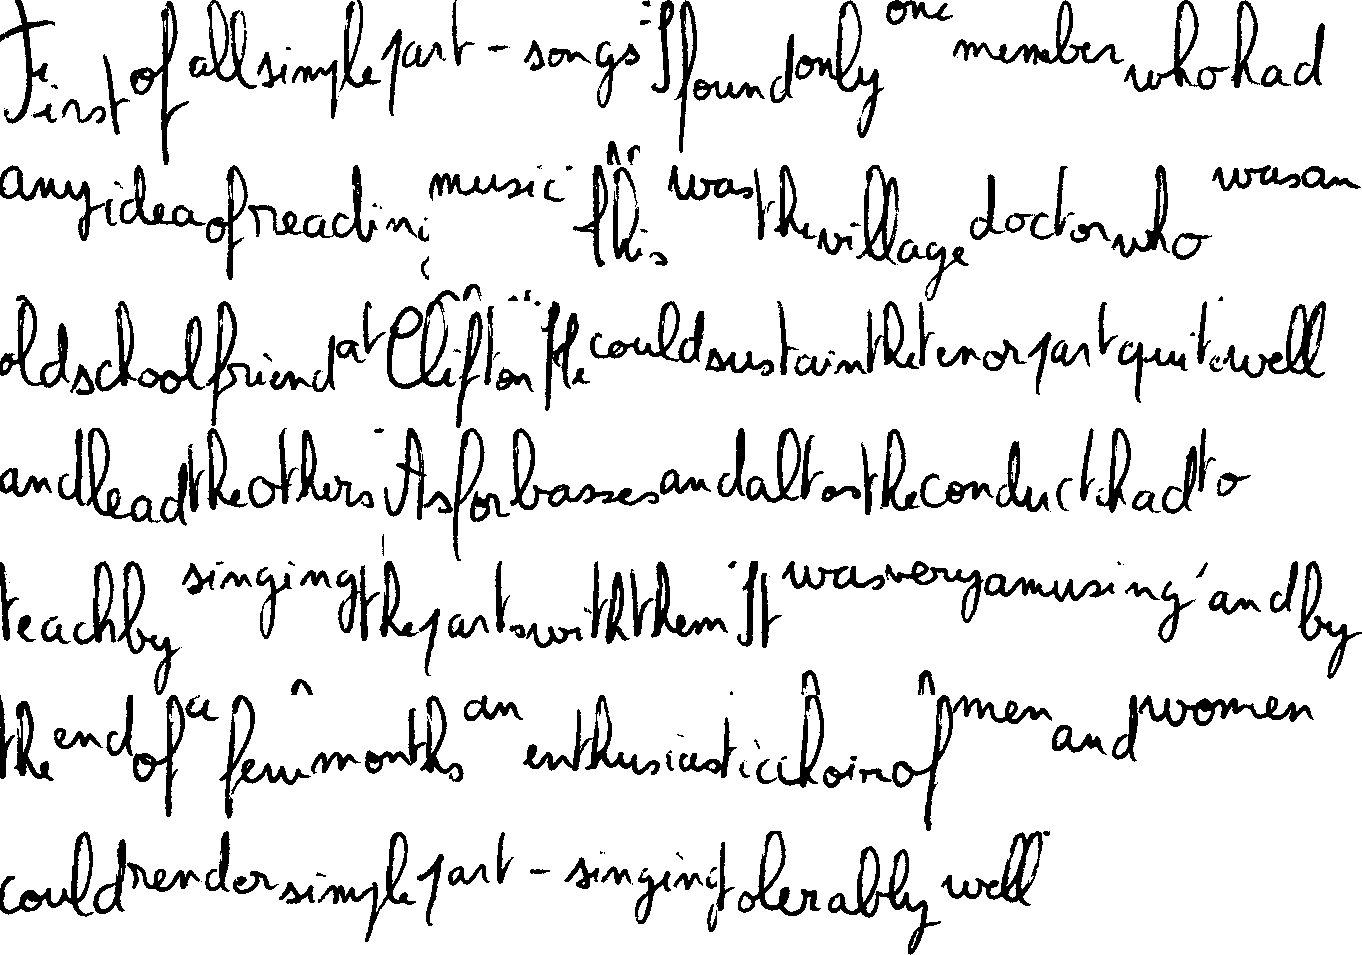 First of all simple part - songs. I found only one member who had
any idea of reading music. This was the village doctor who was an
old school friend at Clifton. He could sustain the tenor part quite well
and lead the others. As for basses and altos the conductor had to
teach by singing the parts with them. It was very amusing, and by
the end of a few months an enthusiastic choir of men and women
could render simple part - singing tolerably well.